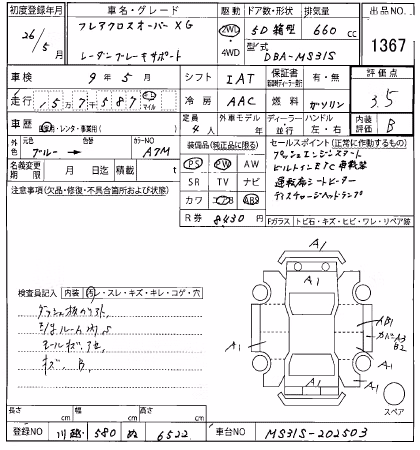 初度登録年月 車名・グレード 駆動 ドア数・形状 排気量 出品NO
26/5月 フレアクロスオーバー XG 2WD 4WD 5D 箱型 660 cc 1367
レーダーブレーキサポート 型式 DBA-MS31S
車検 9年5月 シフト IAT 保証書 有・無 評価点
走行 15万7千587 km マイル 冷房 AAC 燃料 ガソリン 3.5
車歴 自家用・レンタ・事業用( ) 定員 4人 外車モデル 年 ディーラー車 ハンドル 左・右 内装評価 B
外色 元色 ブルー→ 色 カラーNO A7M 装備品(純正品に限る) セールスポイント(正常に作動するもの)
名義変更期限 月 日迄 積載 t PS PW AW プッシュエンジンスタート
注意事項(欠品・修復・不具合箇所および改造) SR TV ナビ ビルトインETC車載器
カワ エアB ABS 運転席シートヒーター
R券 8430円 ディスチャージヘッドランプ
Fガラス トビ石・キズ・ヒビ・ワレ・リペア跡
A1
検査員記入 内装 汚れ・スレ・キズ・キレ・コゲ・穴 A1
A1
A1 A1
カバー A3
B2
A1
A1
スペア
長さ cm 幅 cm 高さ cm
登録NO 川越 580 ぬ 6522 車台NO MS31S-202503